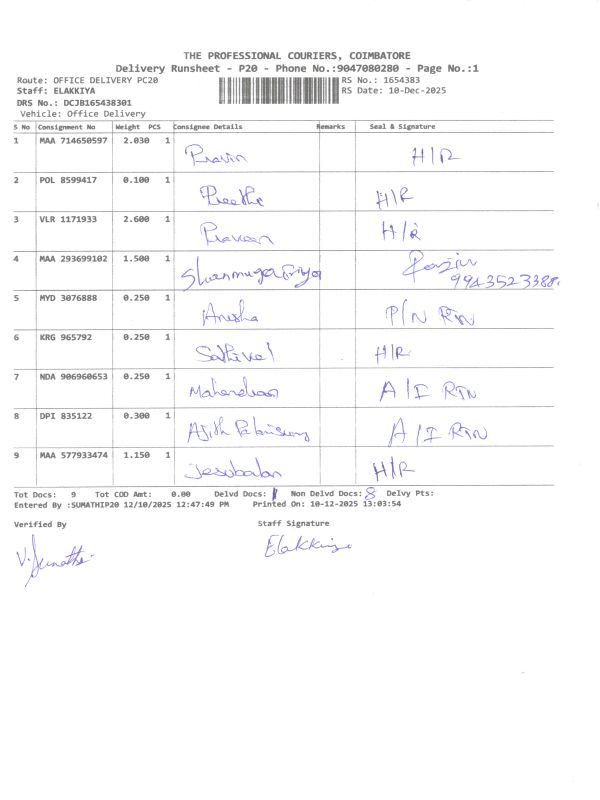 THE PROFESSIONAL COURIERS, COIMBATORE
Delivery Runsheet - P20 - Phone No.:9047080280 - Page No.:1
Route: OFFICE DELIVERY PC20 RS No.: 1654383
Staff: ELAKKIYA RS Date: 10-Dec-2025
DRS No.: DCJB165438301
Vehicle: Office Delivery
S No Consignment No Weight PCS Consignee Details Remarks Seal & Signature
1 MAA 714650597 2.030 1 Pravin H/R
2 POL 8599417 0.100 1 Preethi H/R
3 VLR 1171933 2.600 1 Praveen H/R
4 MAA 293699102 1.500 1 Shanmugapriya
9943523388
5 MYD 3076888 0.250 1 Anusha P/N RTN
6 KRG 965792 0.250 1 Sathivel H/R
7 NDA 906960653 0.250 1 Mahendran A/I RTN
8 DPI 835122 0.300 1 Ajith A/I RTN
9 MAA 577933474 1.150 1 Jesubalan H/R
Tot Docs: 9 Tot COD Amt: 0.00 Delvd Docs: 1 Non Delvd Docs: 8 Delvy Pts:
Entered By :SUMATHIP20 12/10/2025 12:47:49 PM Printed On: 10-12-2025 13:03:54
Verified By Staff Signature
V. Sumathi Elakkiya